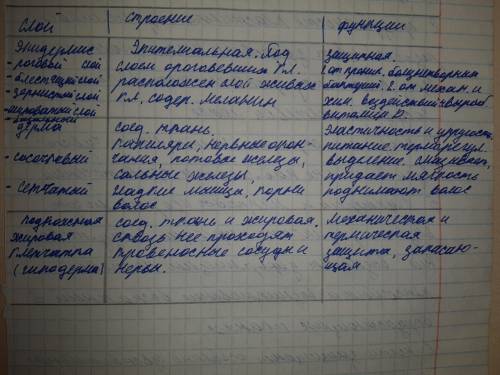 Слой строение функции
Эпидермис Эпителиальная. Под защитная.
- роговой слой слоем ороговевших кл. 1. от проник. болезнетворных
- блестящий слой расположен слой живых бактерий 2. от механ. и
- зернистый слой кл. содер. меланин хим. воздействий
- шиповатый слой витамина D.
дерма соед. ткань. эластичность и упругость
капилляры, нервные окон- питание, терморегул.
- сосочковый чания, потовые железы, выделение. смазывает,
сальные железы, придает мягкость
- сетчатый гладкие мышцы, корни поднимают волос
волос
подкожная соед. ткань и жировая. механическая и
жировая сквозь нее проходят термическая
клетчатка кровеносные сосуды и защита, запасаю-
(гиподерма) нервы. щая